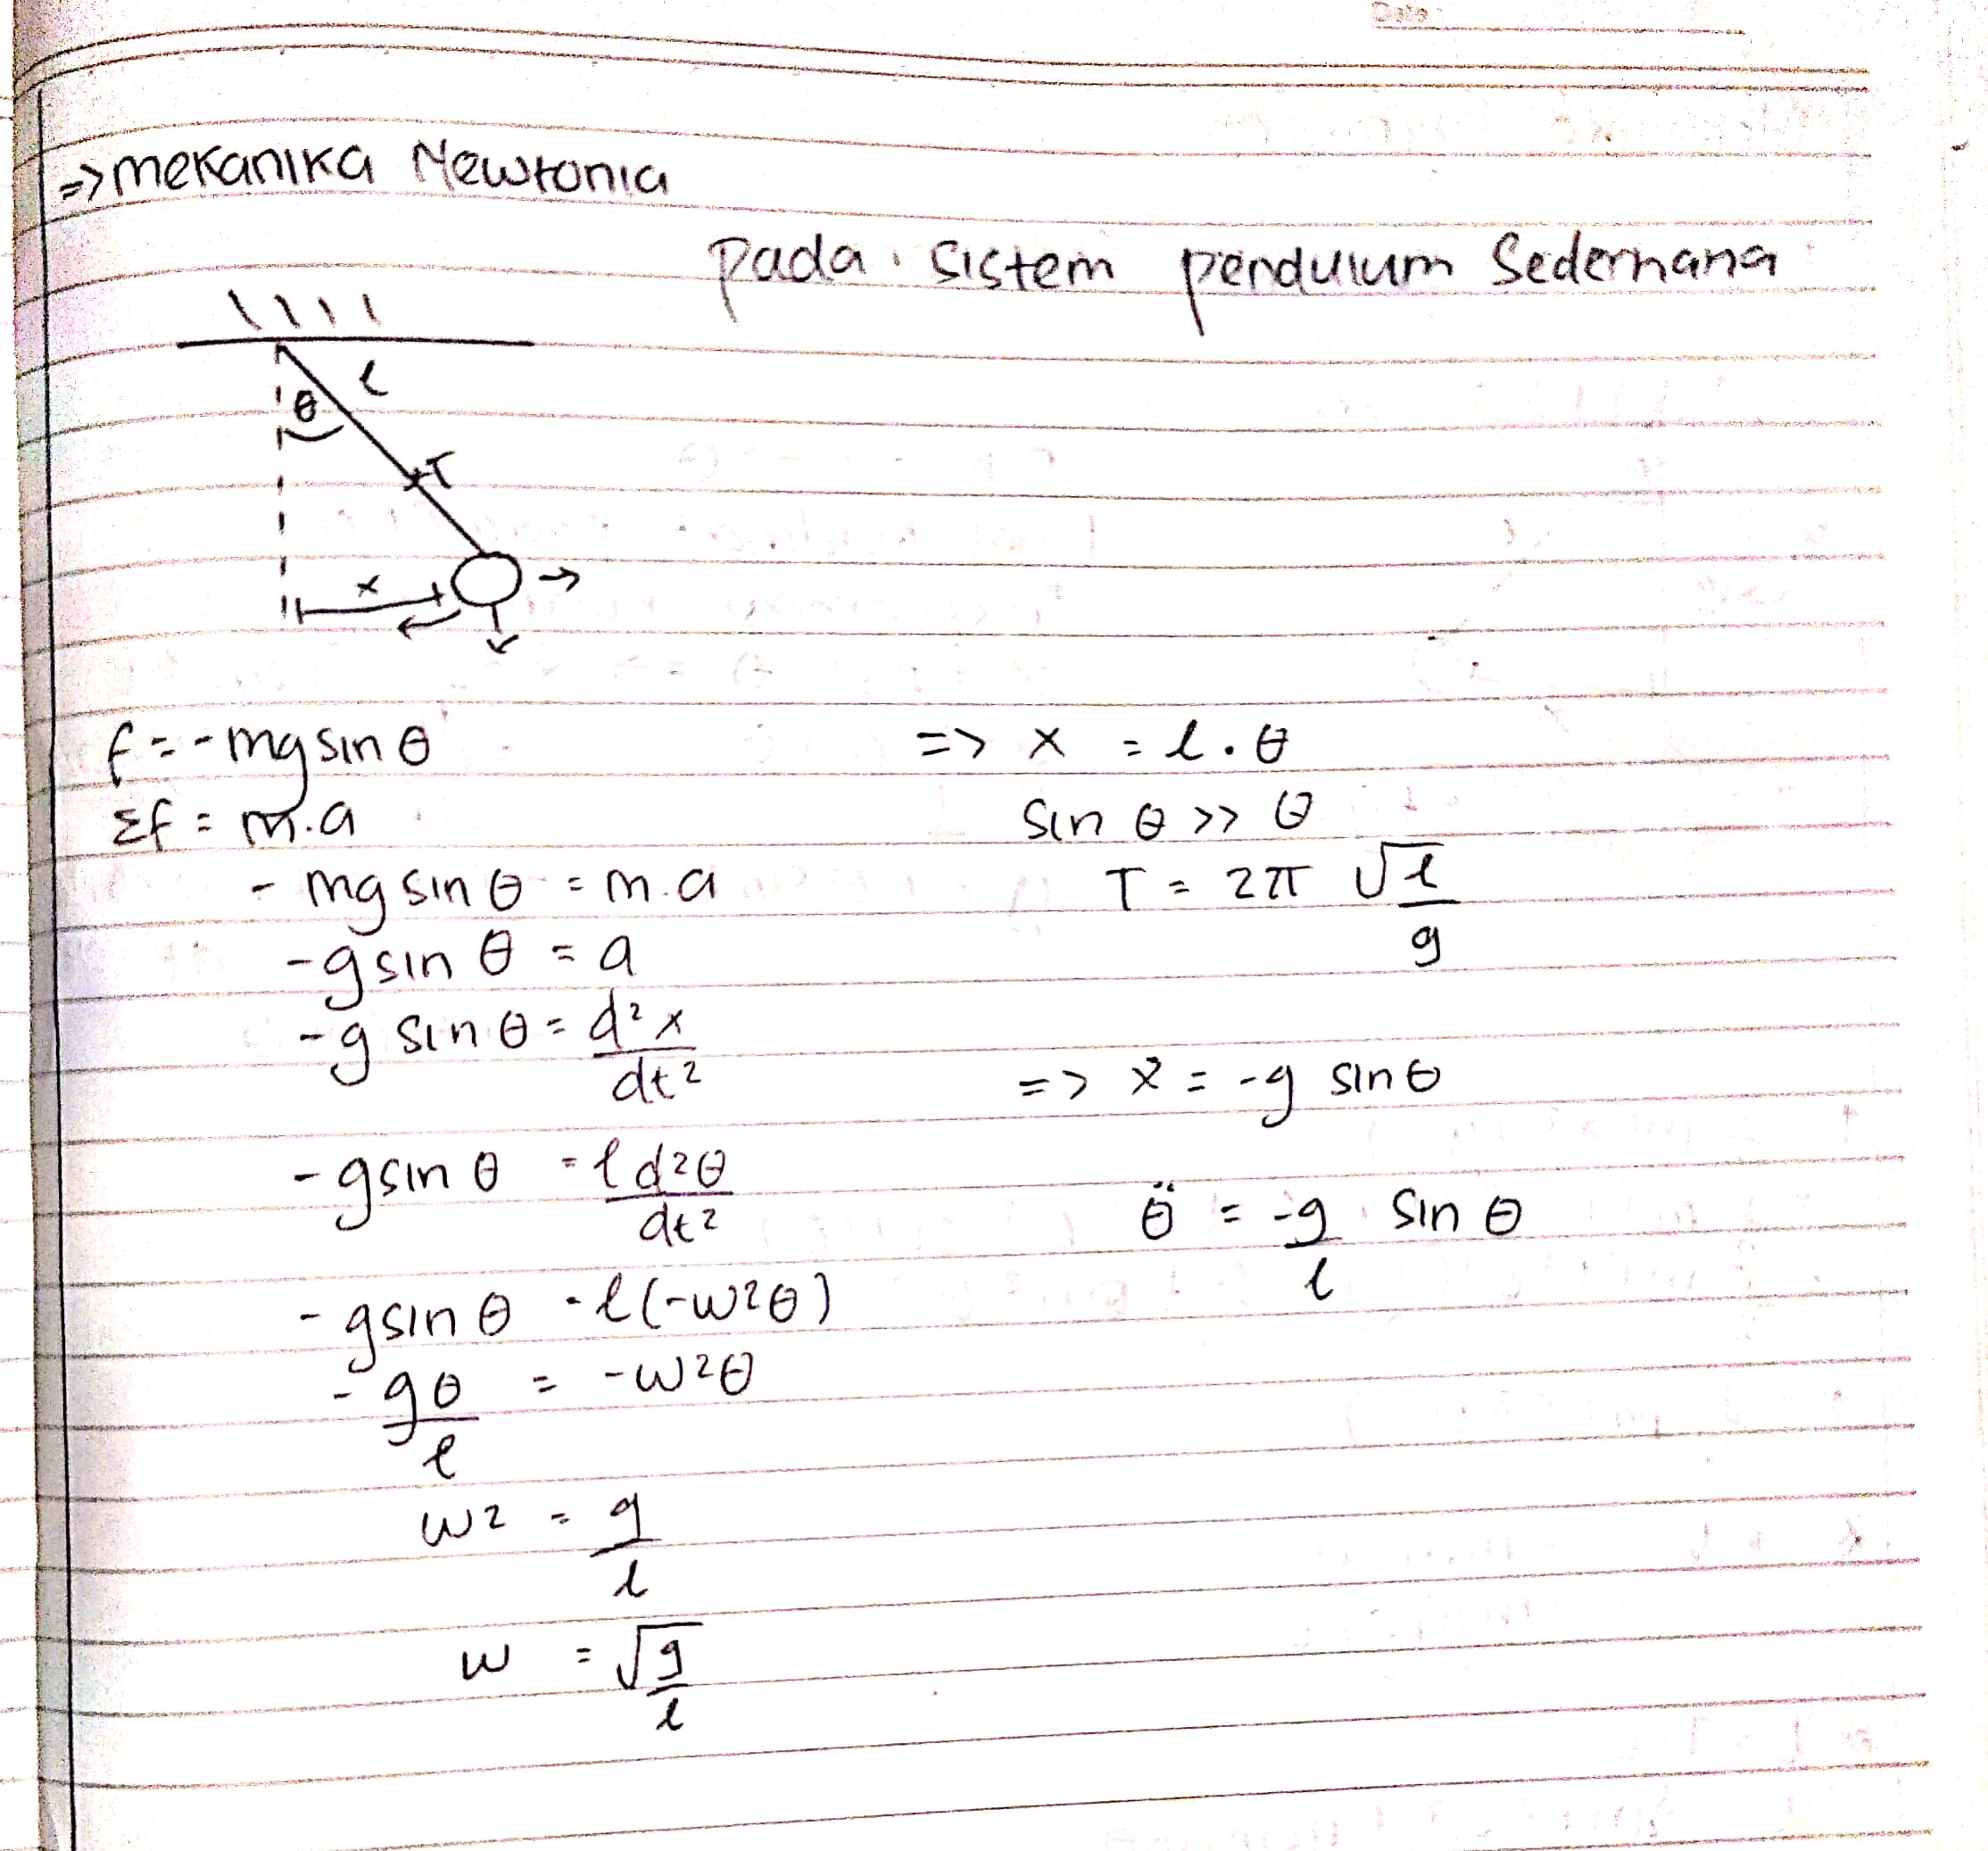 Date:
=> mekanika Newtonia
Pada sistem pendulum Sederhana
l
θ
T
x
f = -mg sin θ
Σf = m.a
- mg sin θ = m.a
-g sin θ = a
-g sin θ = d²x/dt²
-g sin θ = l d²θ/dt²
-g sin θ = l(-w²θ)
-gθ/l = -w²θ
w² = g/l
w = √g/l
=> x = l.θ
sin θ >> θ
T = 2π √l/g
=> ẍ = -g sin θ
θ̈ = -g/l sin θ